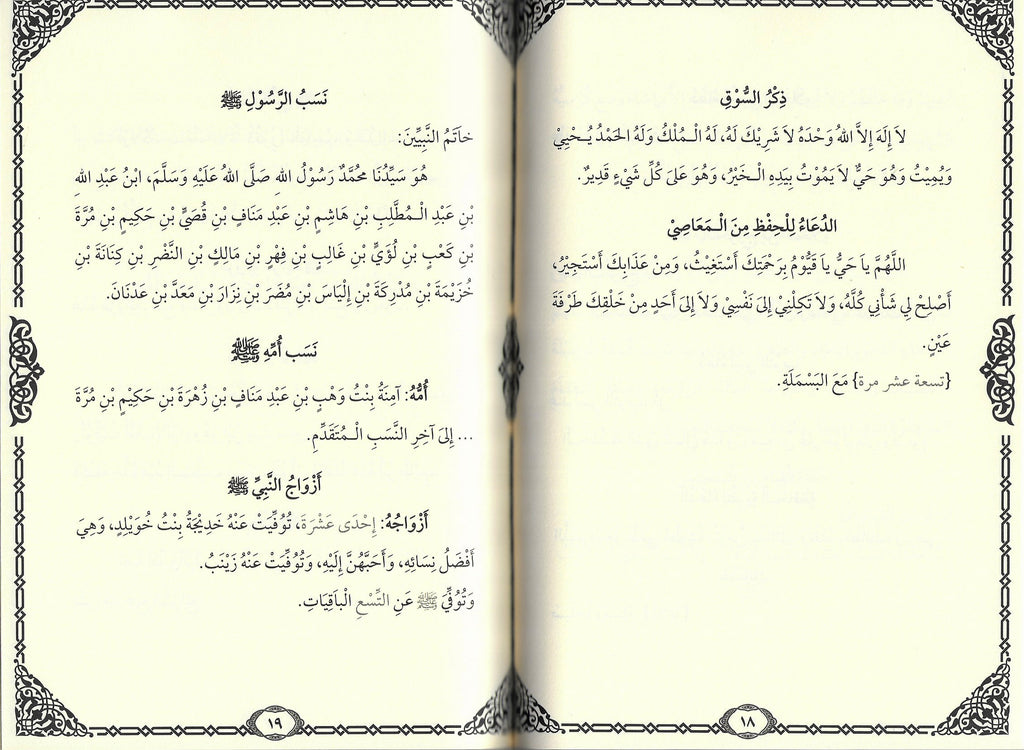 ذِكْرُ السُّوْقِ
لاَ إِلَهَ إِلاَّ اللهُ وَحْدَهُ لاَ شَرِيْكَ لَهُ، لَهُ الْـمُلْكُ وَلَهُ الحَمْدُ يُـحْيِيْ
وَيُمِيْتُ وَهُوَ حَيٌّ لاَ يَمُوْتُ بِيَدِهِ الْـخَيْرُ، وَهُوَ عَلىَ كُلِّ شَيْءٍ قَدِيرٌ.
الدُعَاءُ لِلْحِفْظِ مِنَ الْـمَعَاصِيْ
اللَّهُمَّ ياَ حَيُّ ياَ قَيُّوْمُ بِرَحْمَتِكَ أَسْتَغِيْثُ، وَمِنْ عَذَابِكَ أَسْتَجِيْرُ،
أَصْلِحْ لِي شَأْنِي كُلَّهُ، وَلاَ تَكِلْنِيْ إِلىَ نَفْسِيْ وَلاَ إِلىَ أَحَدٍ مِنْ خَلْقِكَ طَرْفَةَ
عَيْنٍ.
{تسعة عشر مرة} مَعَ البَسْمَلَةِ.
١٨
نَسَبُ الرَّسُوْلِ ﷺ
خاَتَمُ النَّبِيِّينَ:
هُوَ سَيِّدُنَا محَمَّدٌ رَسُوْلُ اللهِ صَلَّى اللهُ عَلَيْهِ وَسَلَّمَ، ابْنُ عَبْدِ اللهِ
بْنِ عَبْدِ الْـمُطَّلِبِ بْنِ هَاشِمِ بْنِ عَبْدِ مَنَافِ بْنِ قُصَيِّ بْنِ حَكِيمِ بْنِ مُرَّةَ
بْنِ كَعْبِ بْنِ لُؤَيِّ بْنِ غَالِبِ بْنِ فِهْرِ بْنِ مَالِكِ بْنِ النَّضْرِ بْنِ كِنَانَةَ بْنِ
خُزَيْمَةَ بْنِ مُدْرِكَةَ بْنِ إِلْيَاسَ بْنِ مُضَرَ بْنِ نِزَارَ بْنِ مَعَدَّ بْنِ عَدْنَانَ.
نَسَب أُمِّهِ ﷺ
أُمُّهُ: آمِنَةُ بِنْتُ وَهْبِ بْنِ عَبْدِ مَنَافِ بْنِ زُهْرَةَ بْنِ حَكِيْمِ بْنِ مُرَّةَ
... إِلىَ آخِرِ النَّسَبِ الْـمُتَقَدِّمِ.
أَزْوَاجُ النَّبِيِّ ﷺ
أَزْوَاجُهُ: إِحْدَى عَشْرَةَ، تُوُفِّيَتْ عَنْهُ خَدِيْجَةُ بِنْتُ خُوَيْلِدٍ، وَهِيَ
أَفْضَلُ نِسَائِهِ، وَأَحَبَّهُنَّ إِلَيْهِ، وَتُوُفِّيَتْ عَنْهُ زَيْنَبُ.
وَتُوُفِّيَ ﷺ عَنِ التِّسْعِ الْباَقِيَاتِ.
١٩